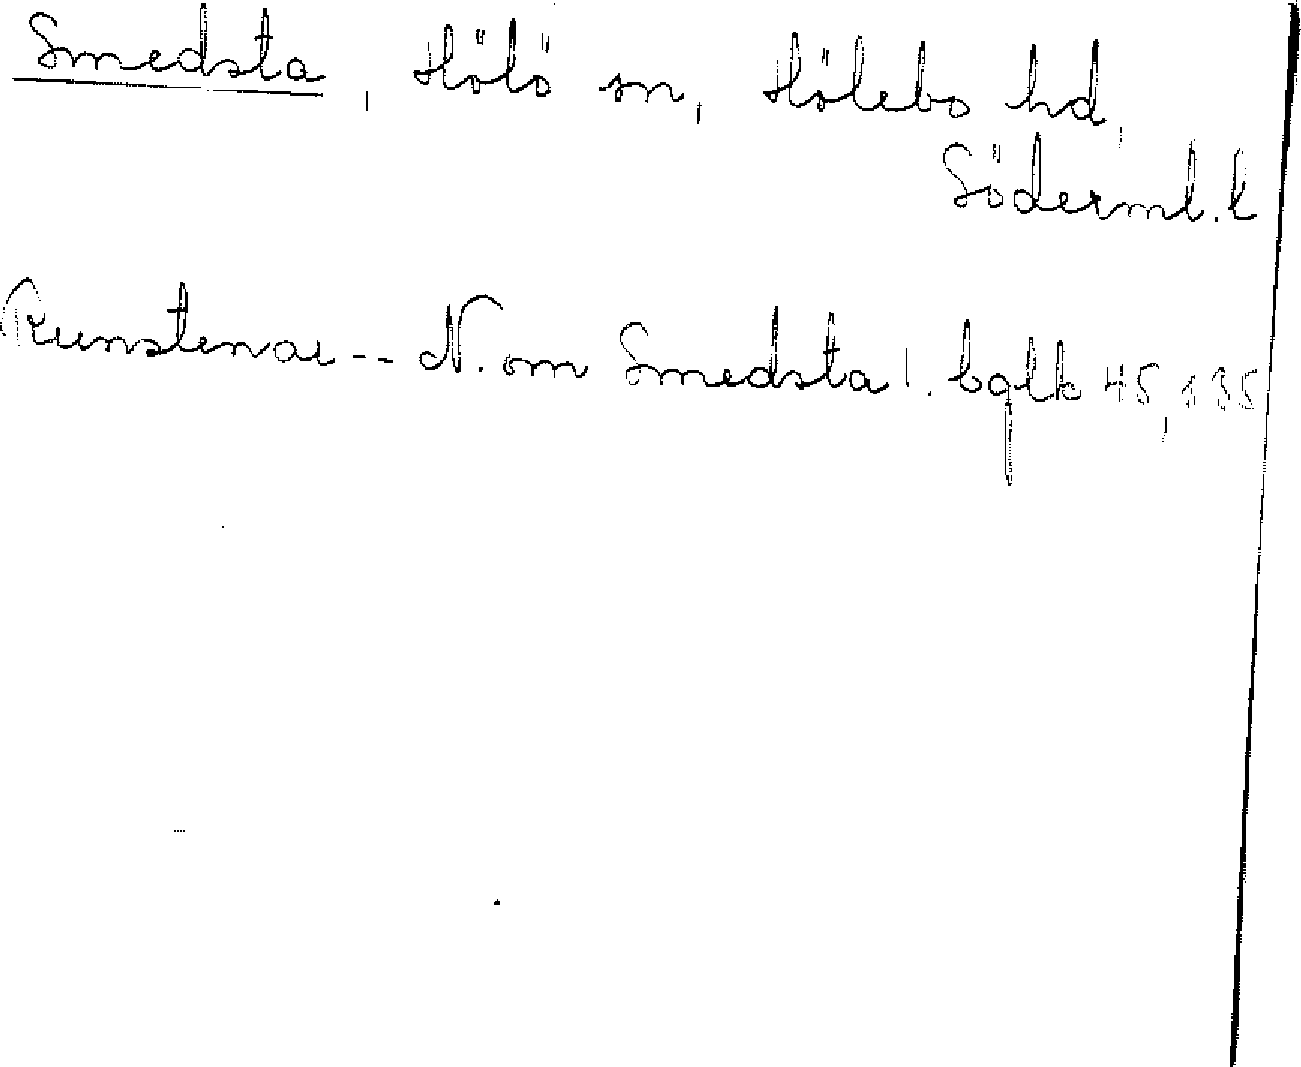 Smedsta, Hölö sn, Hölebo hd,
Söderml. l
Runstenar -- N. om Smedsta!. bglb 45, 135